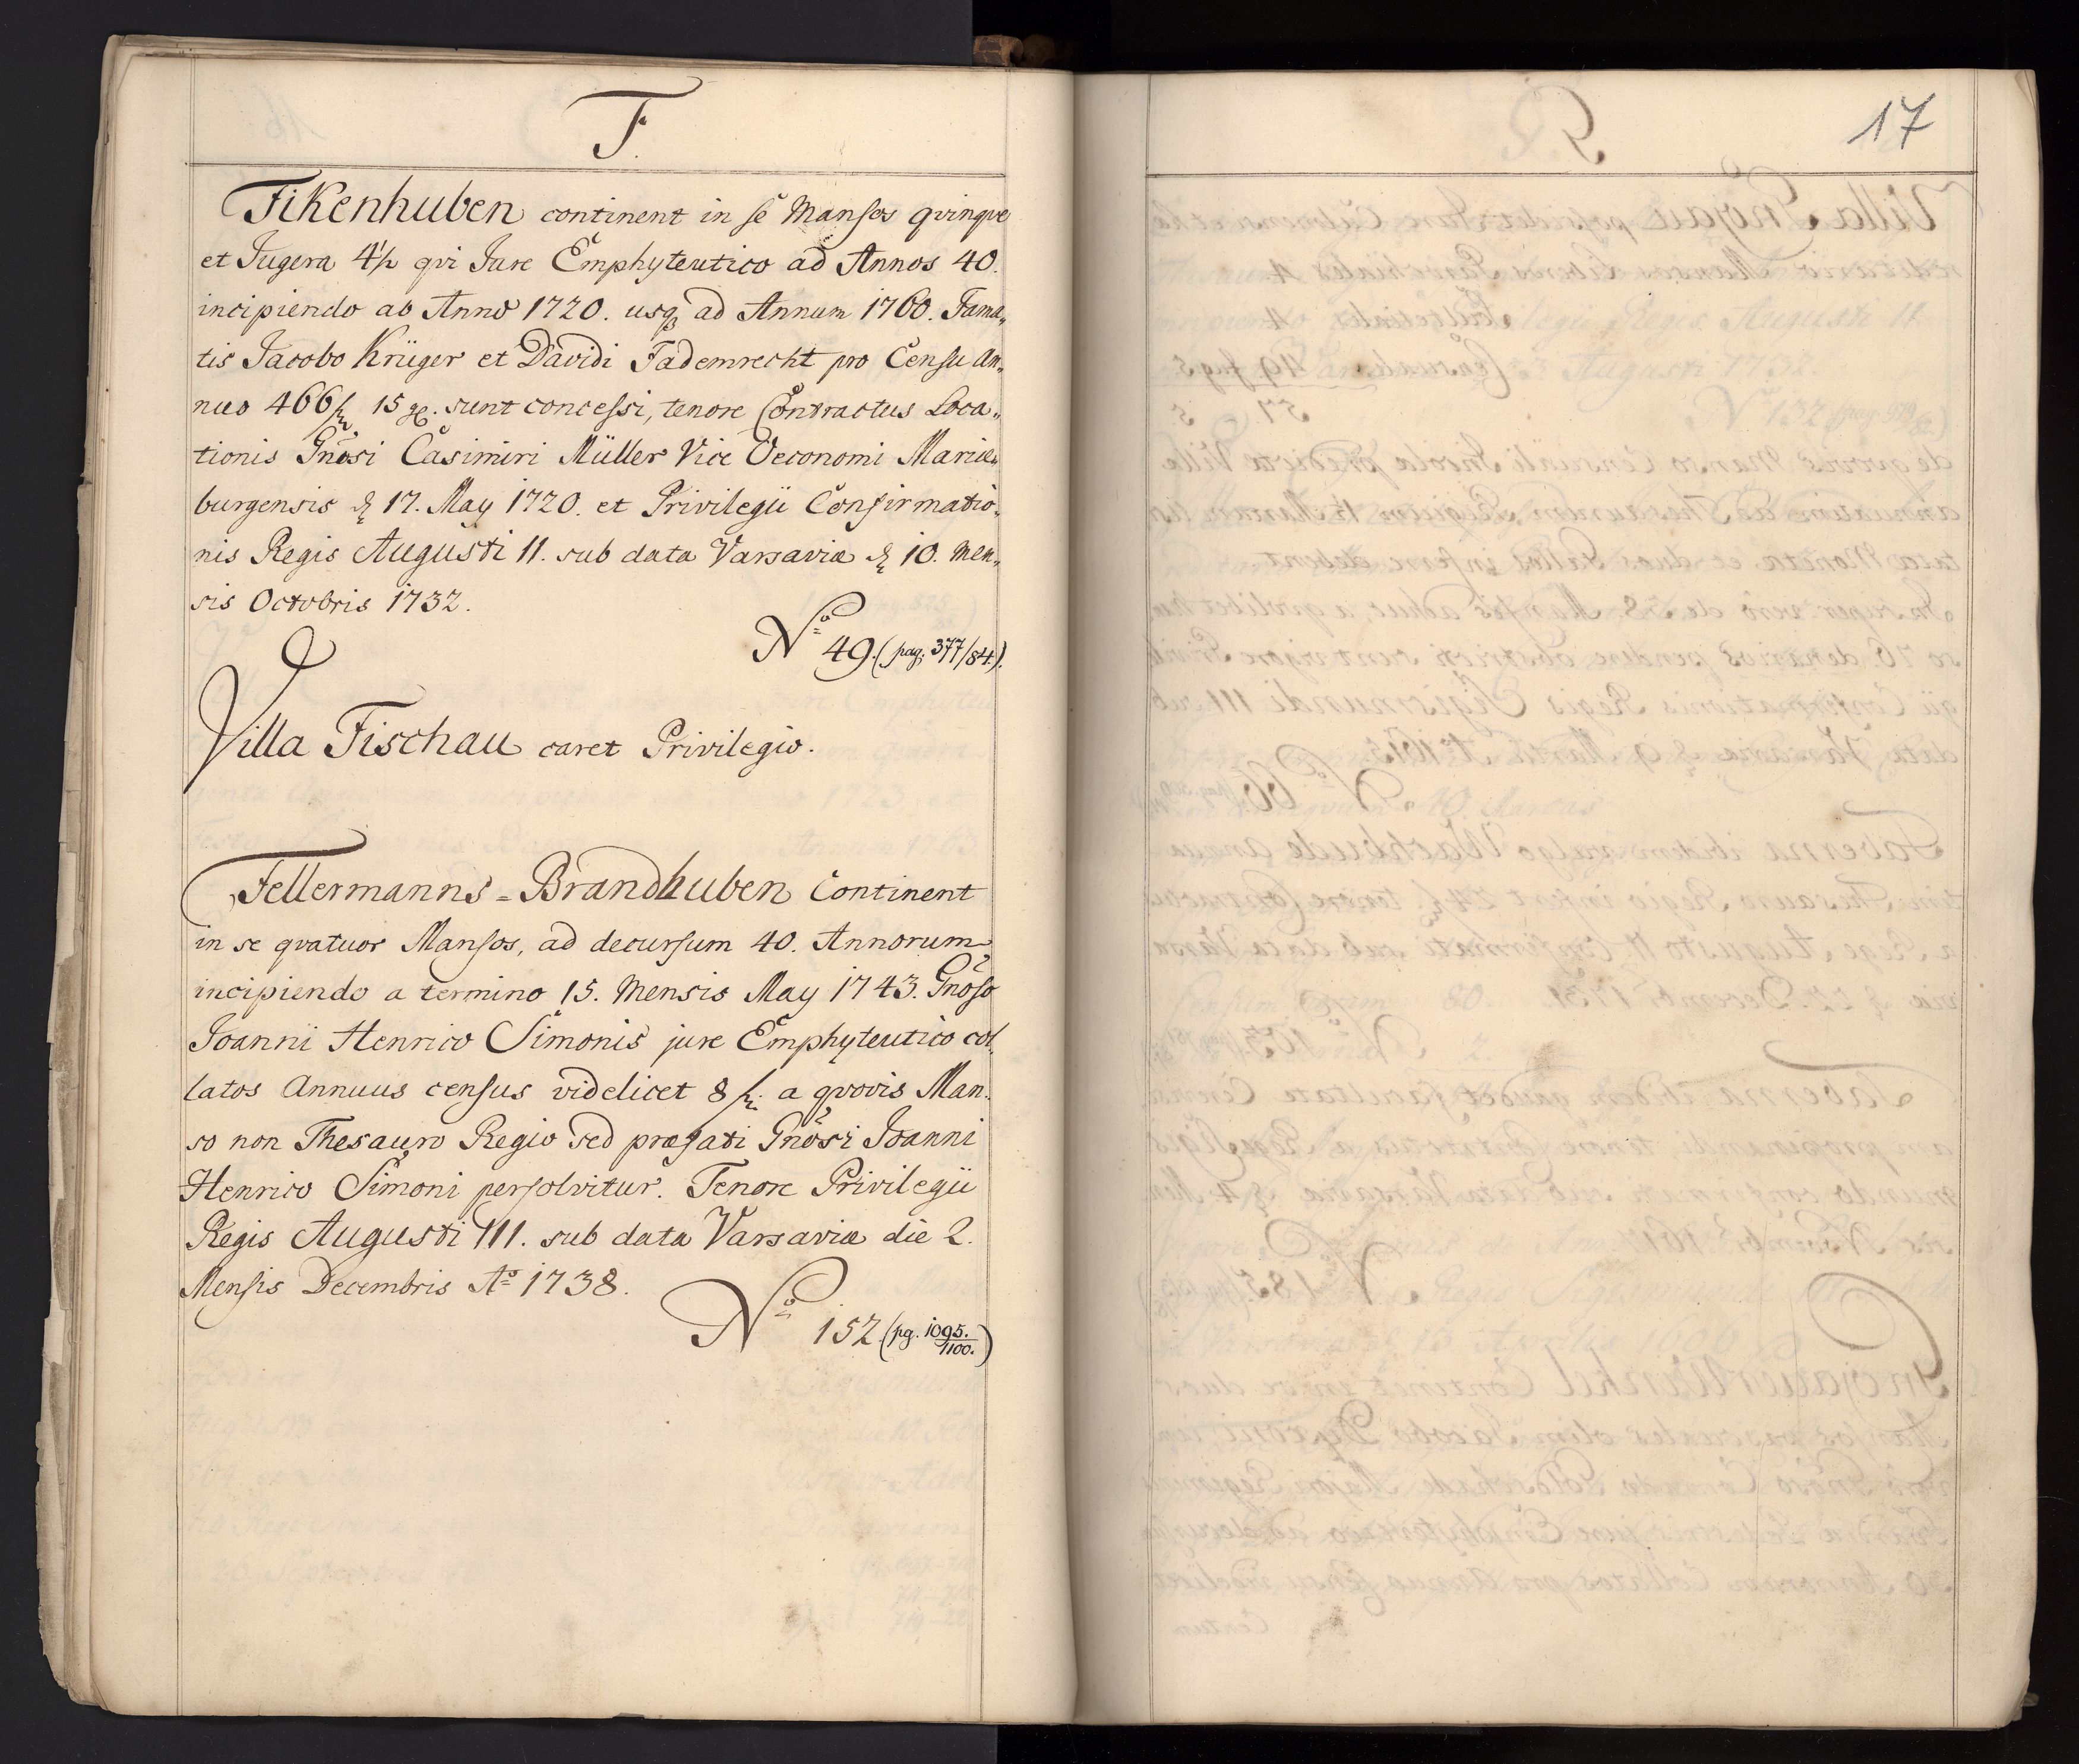 F.
Fikenhuben continent in se Mansos qvinqve
et Jugera 4½ qvi Jure Emphyteutico ad Annos 40.
incipiendo ab Anno 1720. usq ad Annum 1760. Fama„
tis Jacobo Krüger et Davidi Fademrecht pro Censu An„
nuo 466 15 g. sunt concessi, tenore Contractus Loca„
tionis Gnosi Casimiri Müller Vice Oeconomi Mariæ„
burgensis d 17. May 1720. et Privilegii Confirmatio„
nis Regis Augusti 11. sub data Varsaviæ d 10. Men„
sis Octobris 1732.
No 49. (pag. 377/84.).
Villa Fischau caret Privilegio.
Fellermanns=Brandhuben Continent
in se qvatuor Mansos, ad decursum 40. Annorum
incipiendo a termino 15. Mensis May 1743. Gnoso
Joanni Henrico Simonis jure Emphyteutico col„
latos Annuus census videlicet 8 a qvovis Man„
so non Thesauro Regio sed præfati Gnosi Joanni
Henrico Simoni persolvitur. Tenore Privilegii
Regis Augusti 111. sub data Varsaviæ die 2.
Mensis Decembris Ao 1738.
No 152. (pg. 1095./1100.)
17